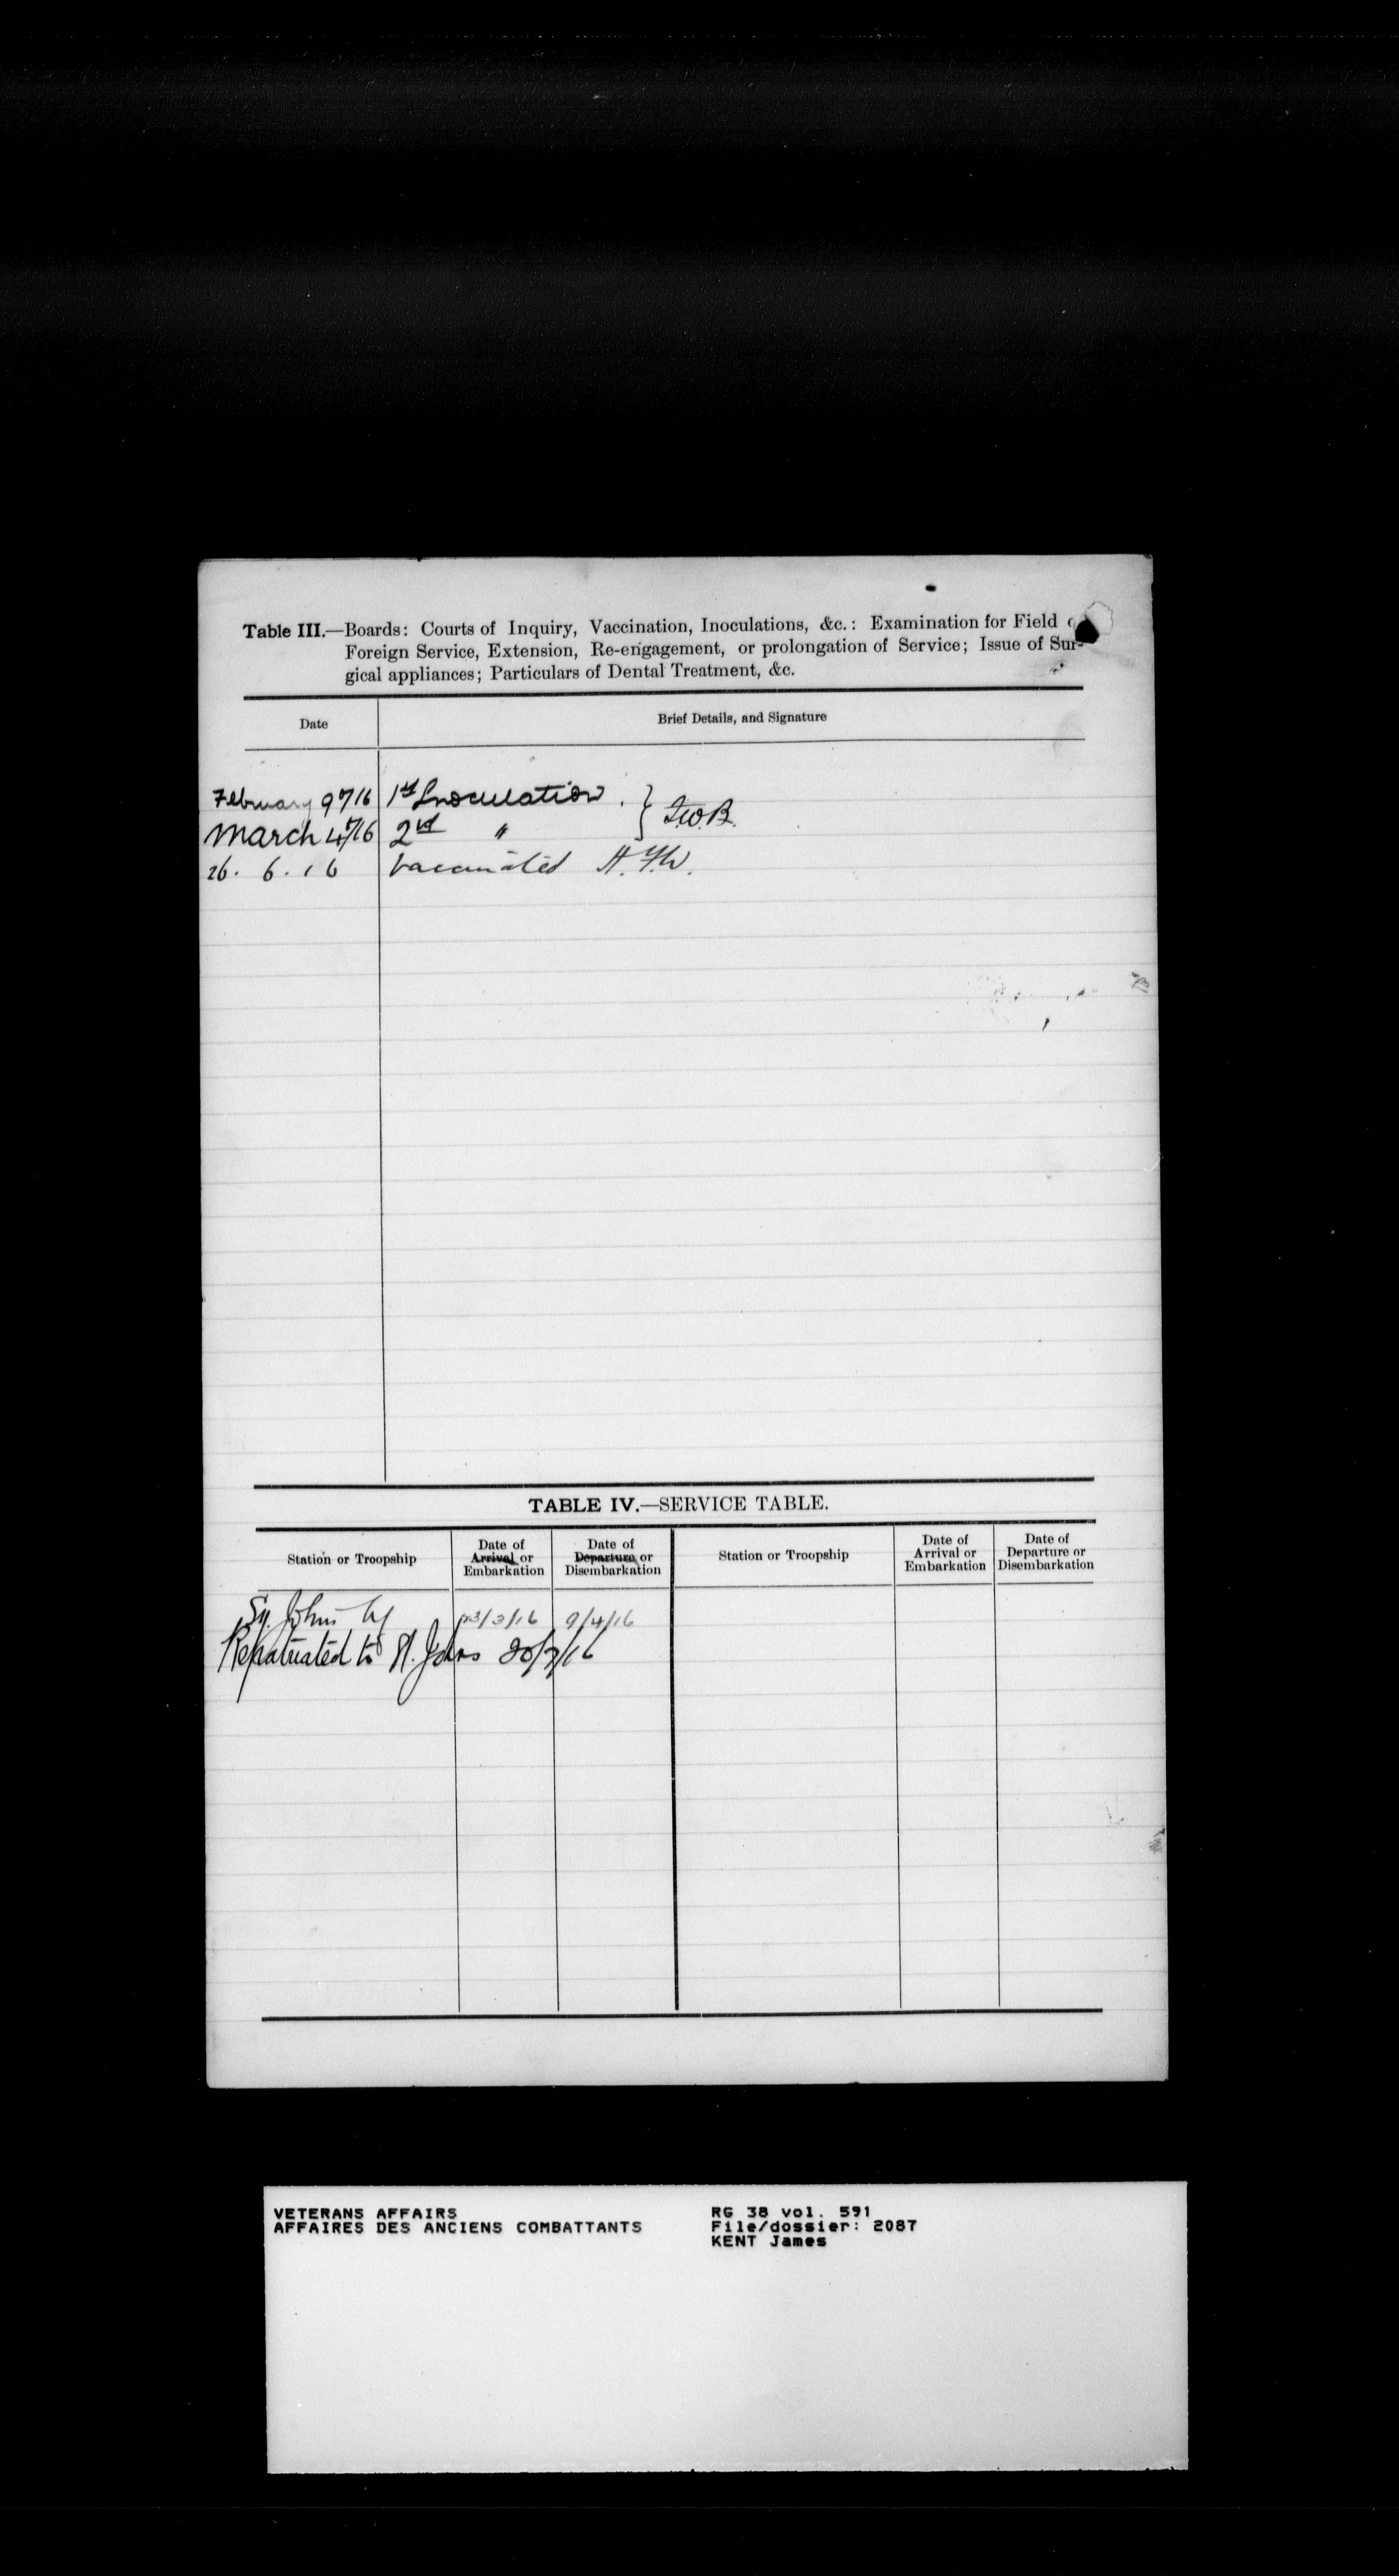 Table III.—Boards: Courts of Inquiry, Vaccination, Inoculations, &c.: Examination for Field
Foreign Service, Extension, Re-engagement, or prolongation of Service; Issue of Sur-
gical appliances; Particulars of Dental Treatment, &c.
Date Brief Details, and Signature
February 9th/16 1st Inoculation. }
March 4th/16 2nd "
26. 6. 16 Vaccinated H.F.W.
TABLE IV.—SERVICE TABLE.
Station or Troopship Date of Arrival or Embarkation Date of Departure or Disembarkation Station or Troopship Date of Arrival or Embarkation Date of Departure or Disembarkation
St. Johns 23/3/16 9/4/16
Repatriated to St. Johns 20/7/16
VETERANS AFFAIRS
AFFAIRES DES ANCIENS COMBATTANTS
RG 38 vol. 591
File/dossier: 2087
KENT James